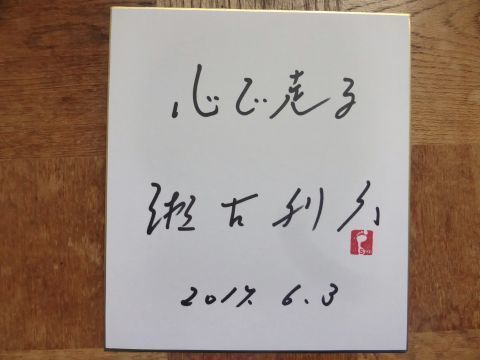 心で走る
瀬古利彦
2017. 6. 3